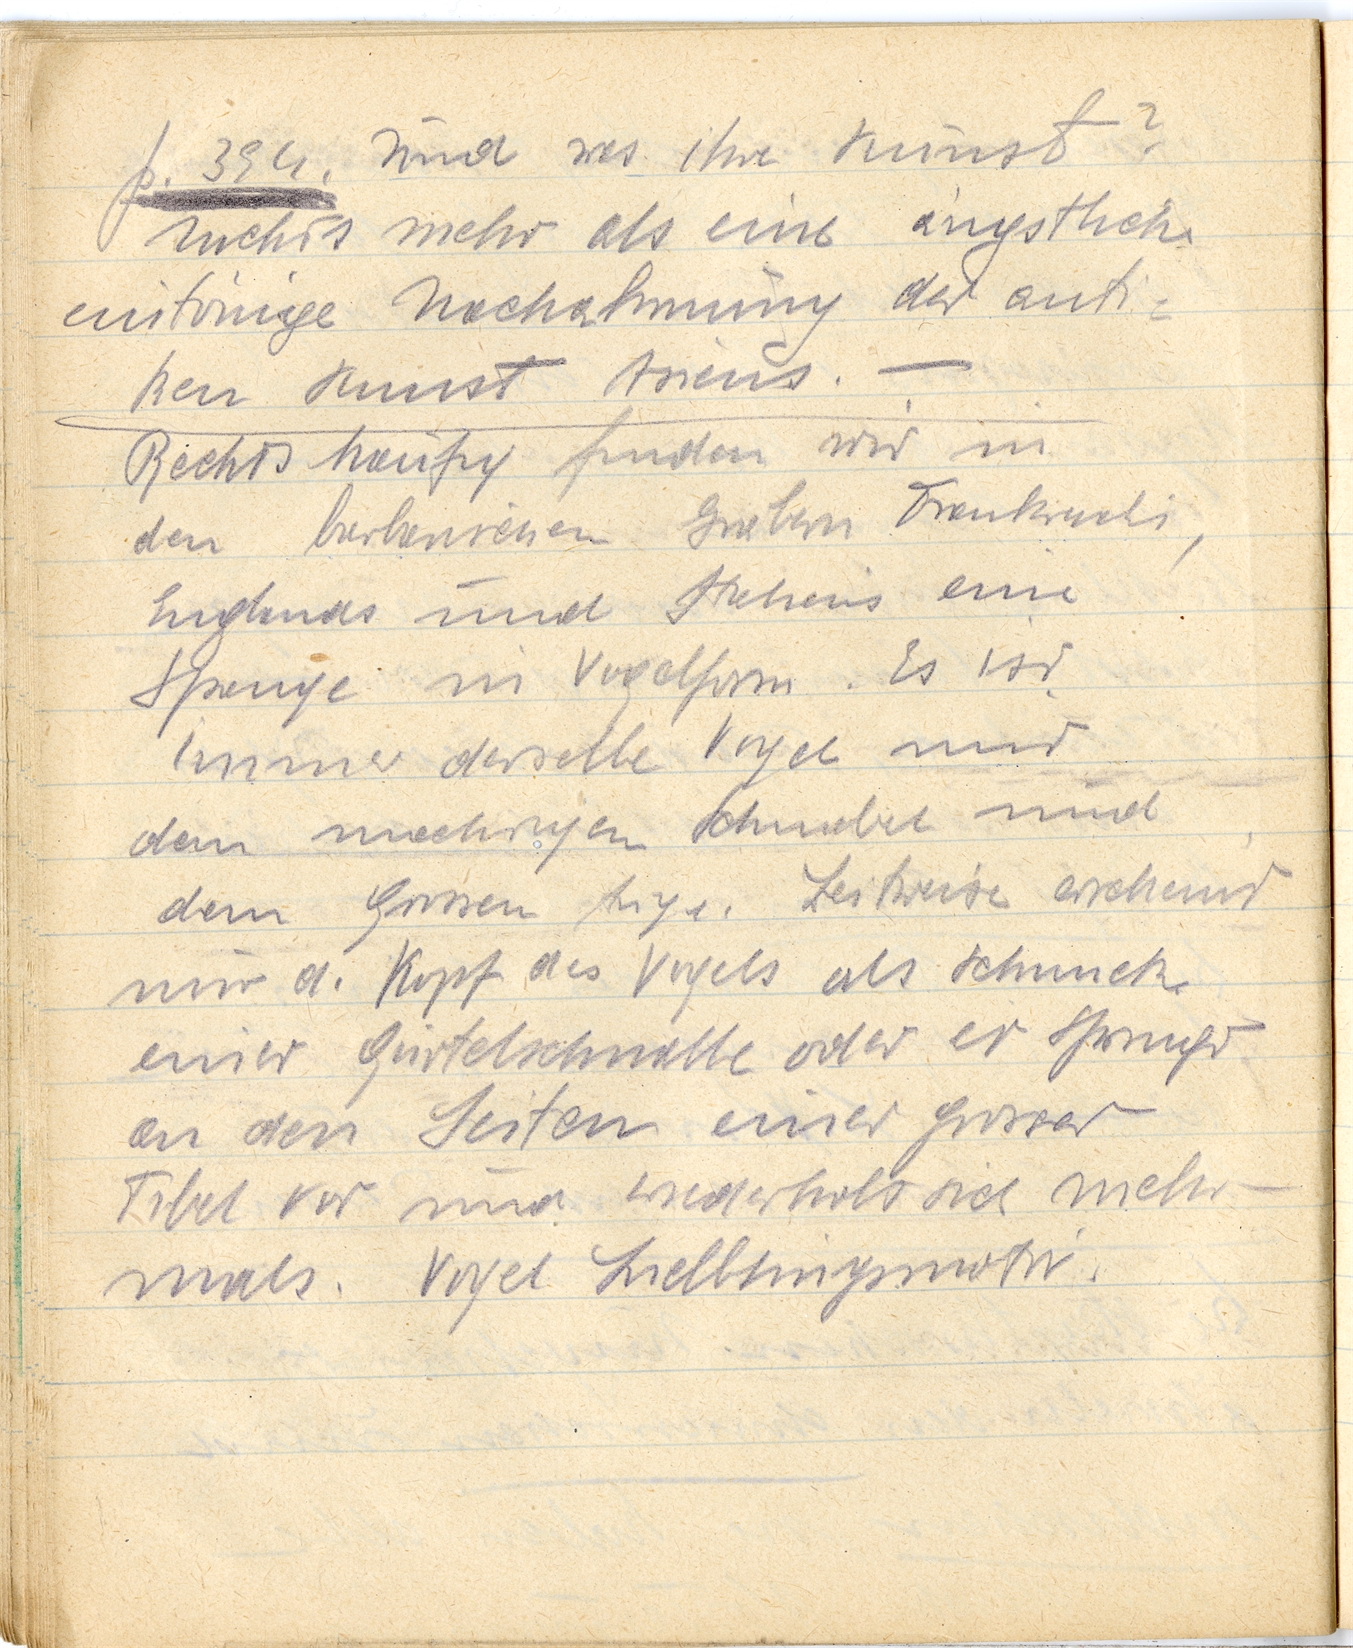 p. 394. Und was ihre Kunst?
Nichts mehr als eine ängstliche
eintönige Nachahmung der anti-
ken Kunst Asiens. —
Rechts häufig finden wir in
den barbarischen Gräbern Frankreichs,
Englands und Italiens eine
Spange in Vogelform. Es ist
immer derselbe Vogel mit
dem mächtigen Schnabel und
dem Grossen Auge. Zeitweise erscheint
nur d. Kopf des Vogels als Schmuck
einer Gürtelschnalle oder er springt
an den Seiten einer grosser
Fibel vor und wiederholt sich mehr-
mals. Vogel Lieblingsmotiv.